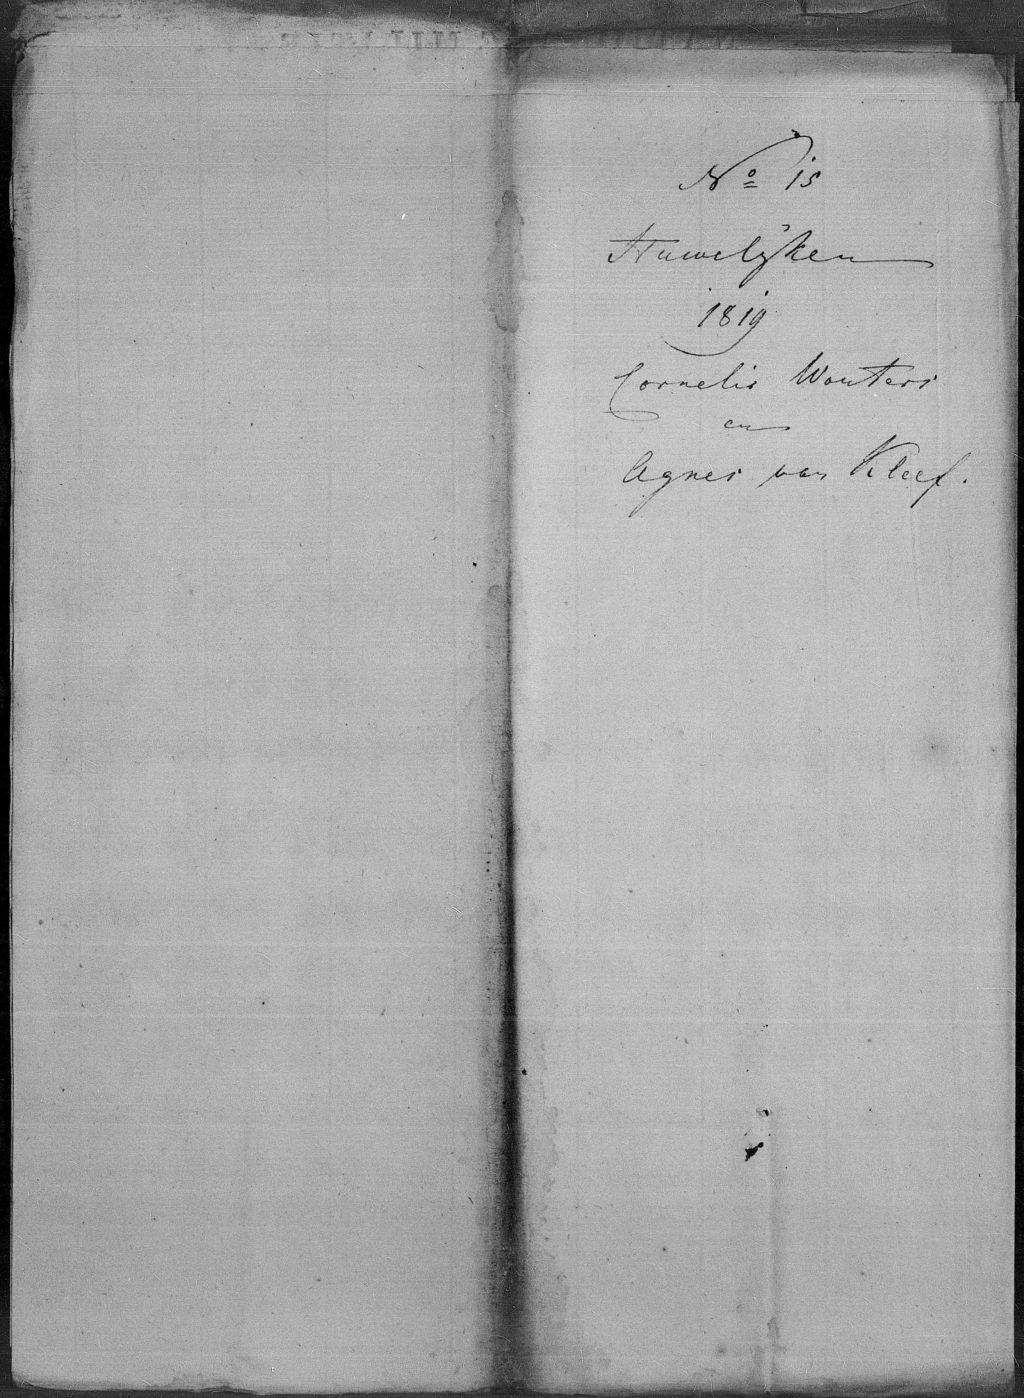 No 15
Huwelijken
1819
Cornelis Wouters
en
Agnes van Kleef.